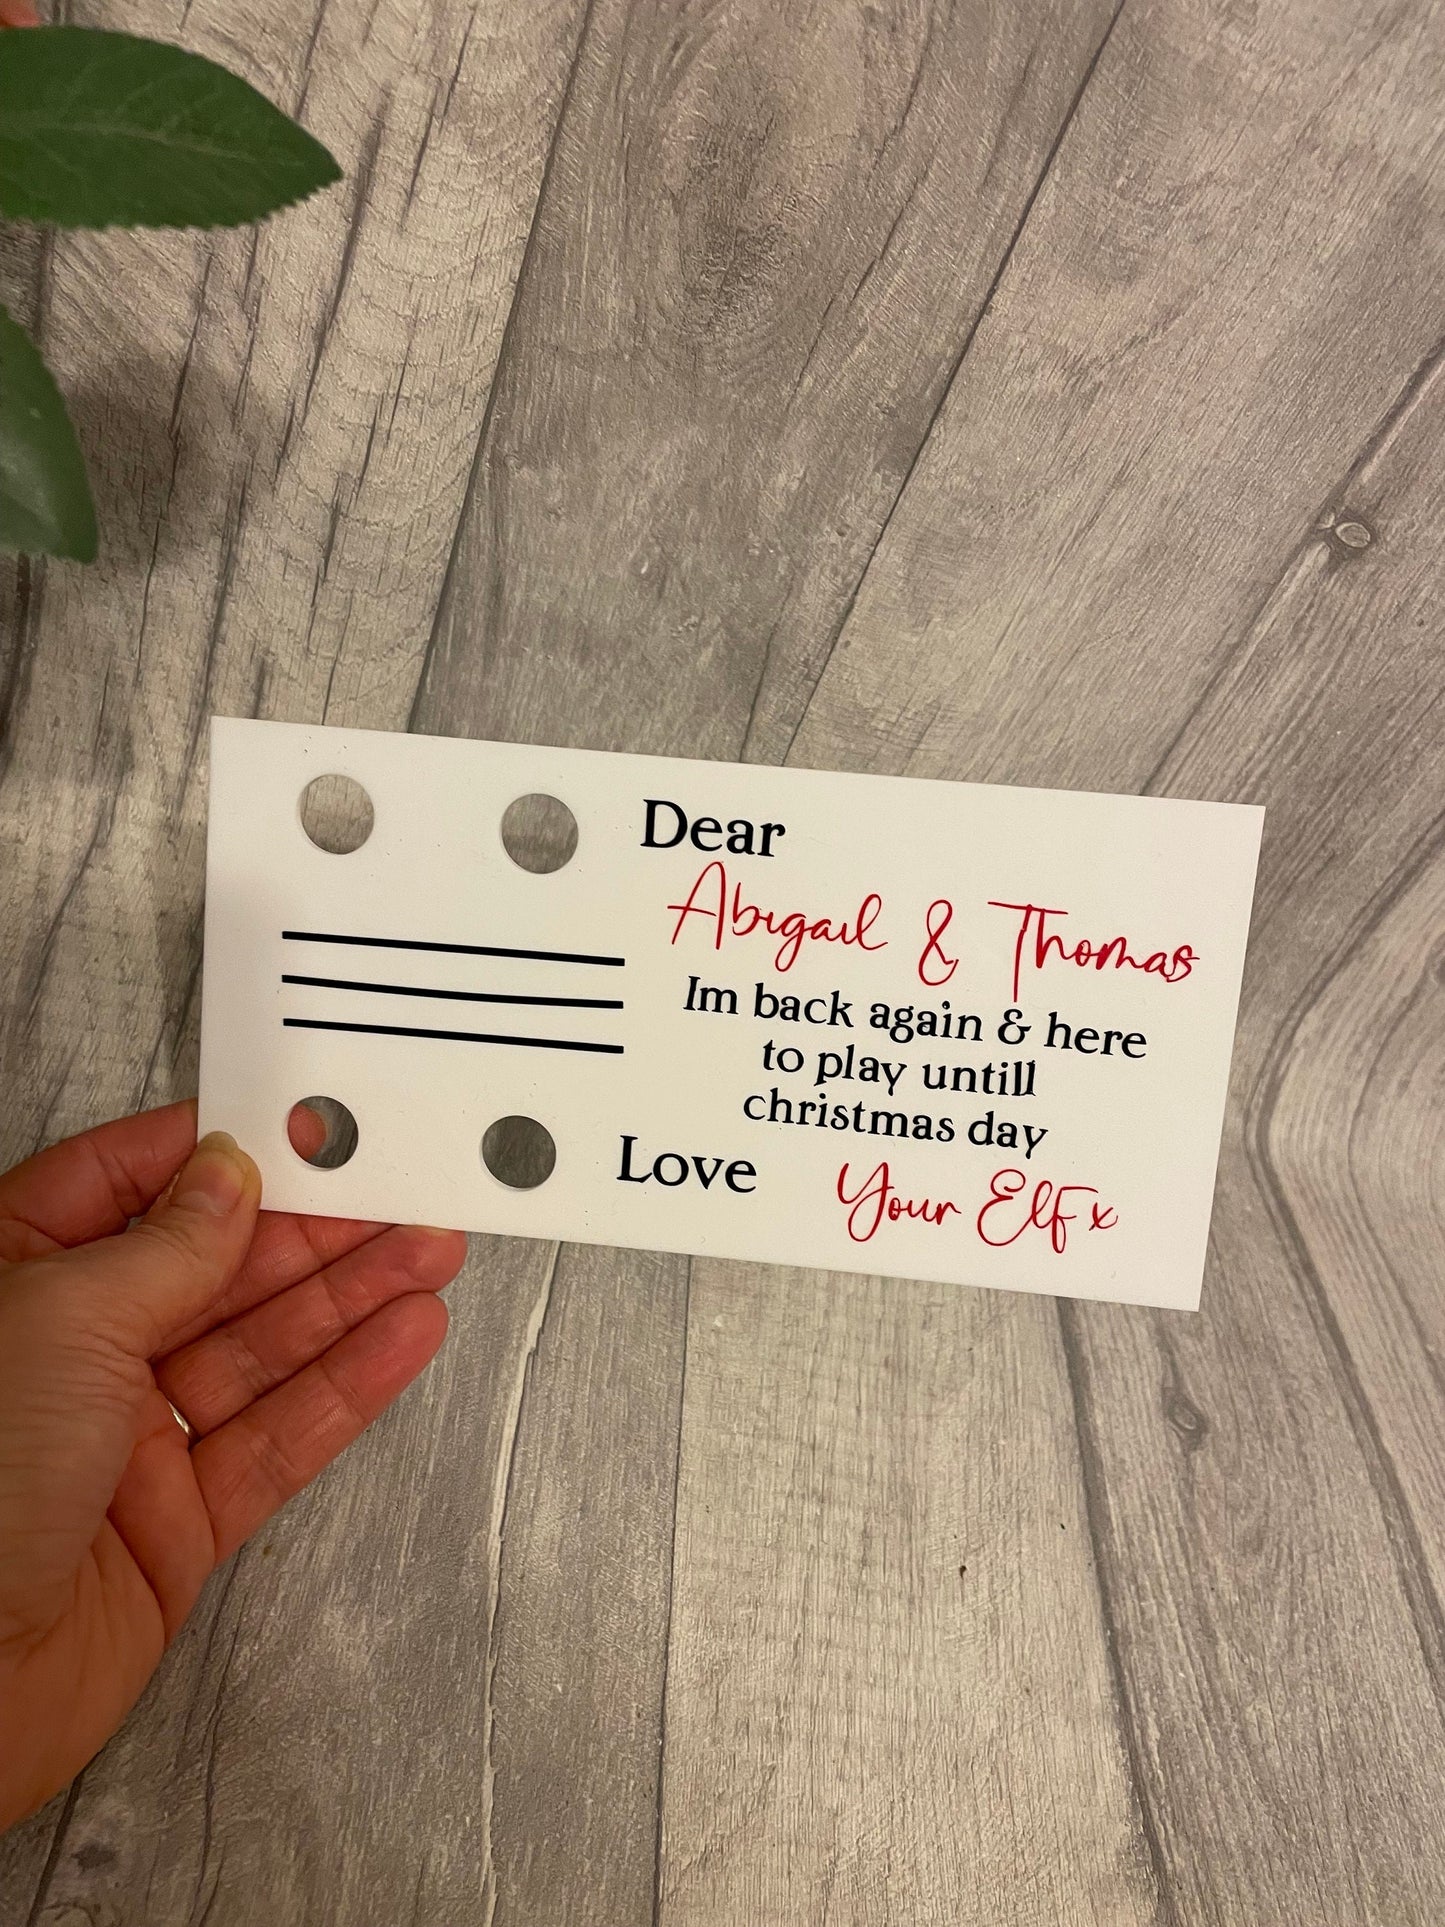 Dear
Abigail & Thomas
Im back again & here
to play untill
christmas day
Love Your Elf x